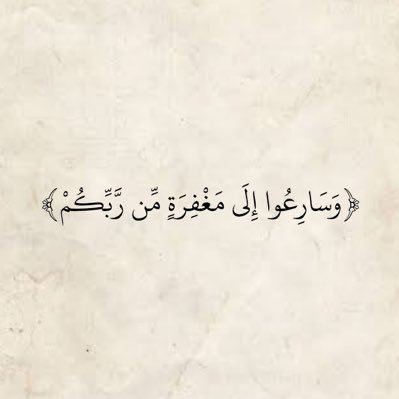 ﴿وَسَارِعُوا إِلَى مَغْفِرَةٍ مِّن رَّبِّكُمْ﴾